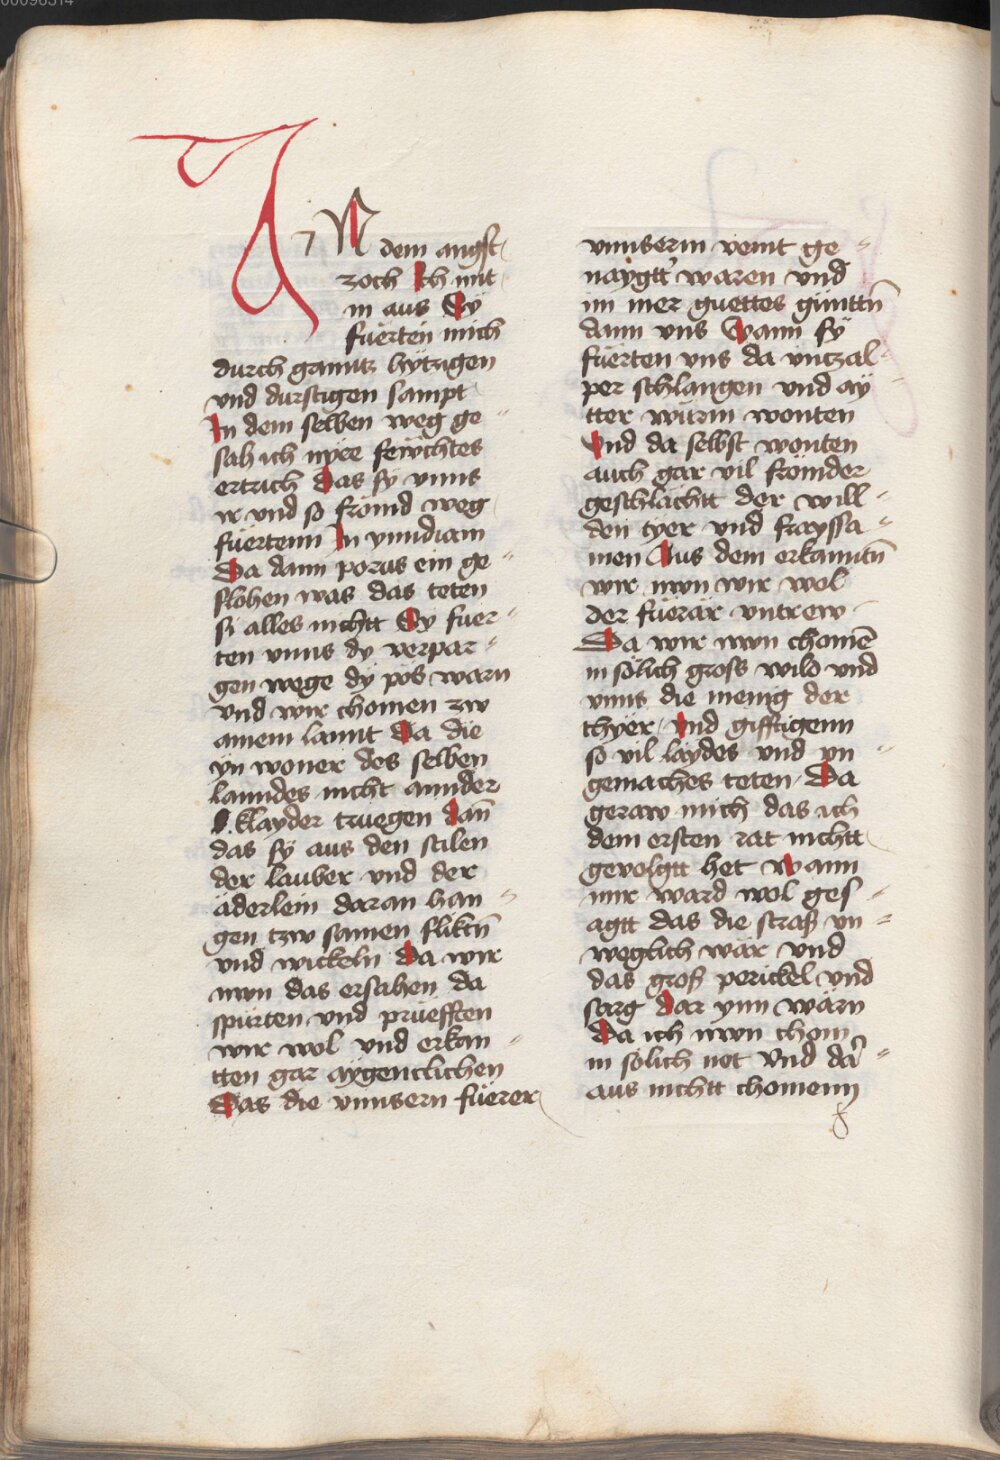 00096314
IN dem angst
zoch Ich mit
in aus Sy
fuerten mich
durch ganntz hytzigen
vnd durstigen sampt
In dem selben weg ge
sach ich nyre feẅchtes
ertrich Das sy vnns
ir vnd so frömd weg
fuertenn In ynndiam
Da dann porus ein ge
flohen was das teten
si alles nichtt Sy fuer
ten vnns dy verpar
gen wege dy pös warn
vnd wir chomen zw
ainem lannt Da die
yn woner des selben
lanndes nicht annder
klayder truegen Dan̄
das sÿ aus den stilen
der lauber vnd der
äderlein daran han
gen tzw samen fliktn̄
vnd wickeln Da wir
nwn das ersahen da
spürten vnd prüefften
wir wol vnd erkan
tten gar aygentlichen
Das die vnnsern füerer
vnnserm veint ge
naygtt waren vnd
im mer guettes gúnttn̄
dann vns Wann sÿ
fuerten vns da vntzal
per schlangen vnd aÿ
tter würm wonten
Vnd da selbst wonten
auch gar vil frömder
geschlächtt der will
den tyer vnd frayssa
men Aus dem erkanntn̄
wir nwn wir wol
der fuerär vntrew
Da wir nwn chomen̄
in sölich gross wild vnd
vnns die menig der
thyer Vnd gifftigenn
so vil laydes vnd vn
gemaches teten Da
geraw mich das ich
dem ersten rat nichtt
gevolgtt het Wann
mir ward wol ges
agtt das die straß vn
weglich wär vnd
das groß perickel vnd
sarg Dar ynn wärn
Da ich nwn chom
in sölich not Vnd da
aus nichtt chomenn